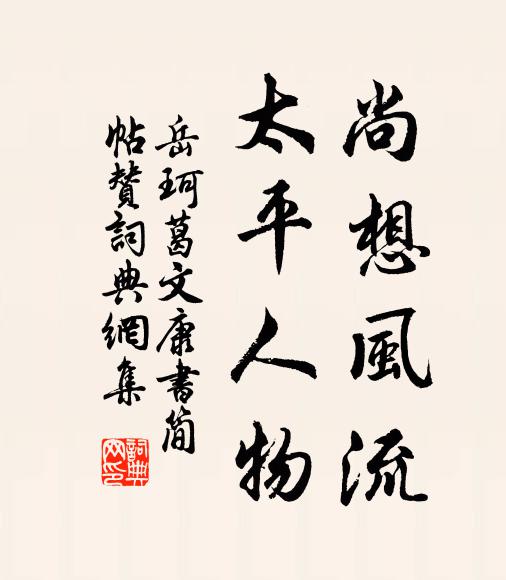 尚想風流
太平人物
岳珂葛文康書简
帖贊詞典網集
詞典网印